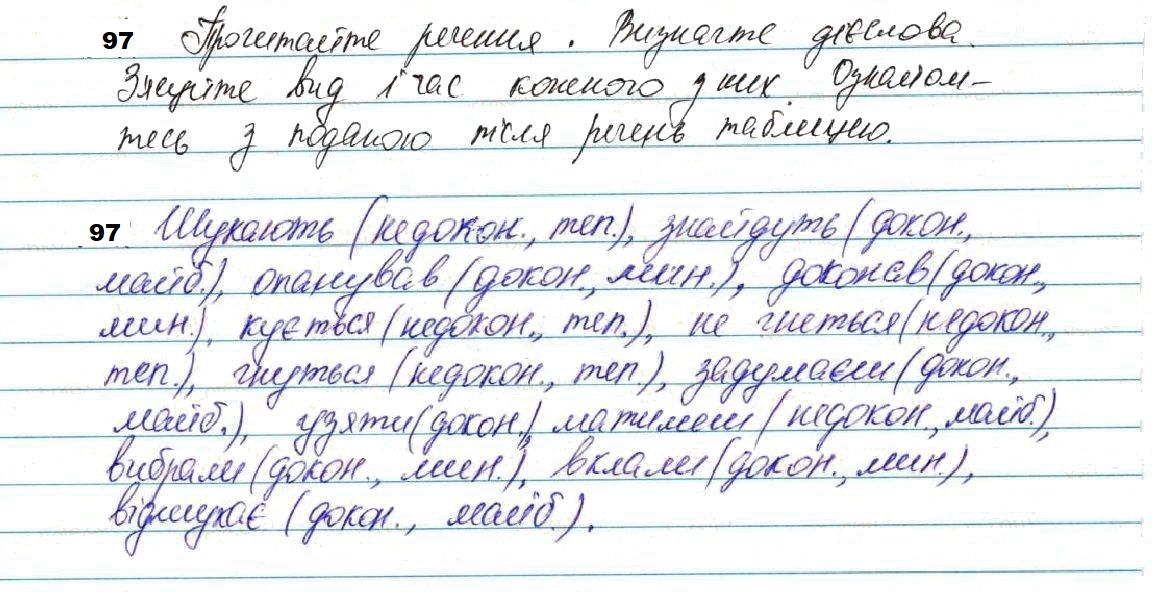 97 Прочитайте речення. Визначте дієслова.
З'ясуйте вид і час кожного з них. Ознайом-
тесь з поданою після речень таблицею.
97 Шукають (недокон., теп.), знайдуть (докон.,
майб.), опанував (докон., мин.), доконав (докон.,
мин.), кується (недокон., теп.), не гнеться (недокон.,
теп.), гнуться (недокон., теп.), задумаєш (докон.,
майб.), узяти (докон.), матимеш (недокон., майб.),
вибрали (докон., мин.), вклали (докон., мин.),
відшукає (докон., майб.).